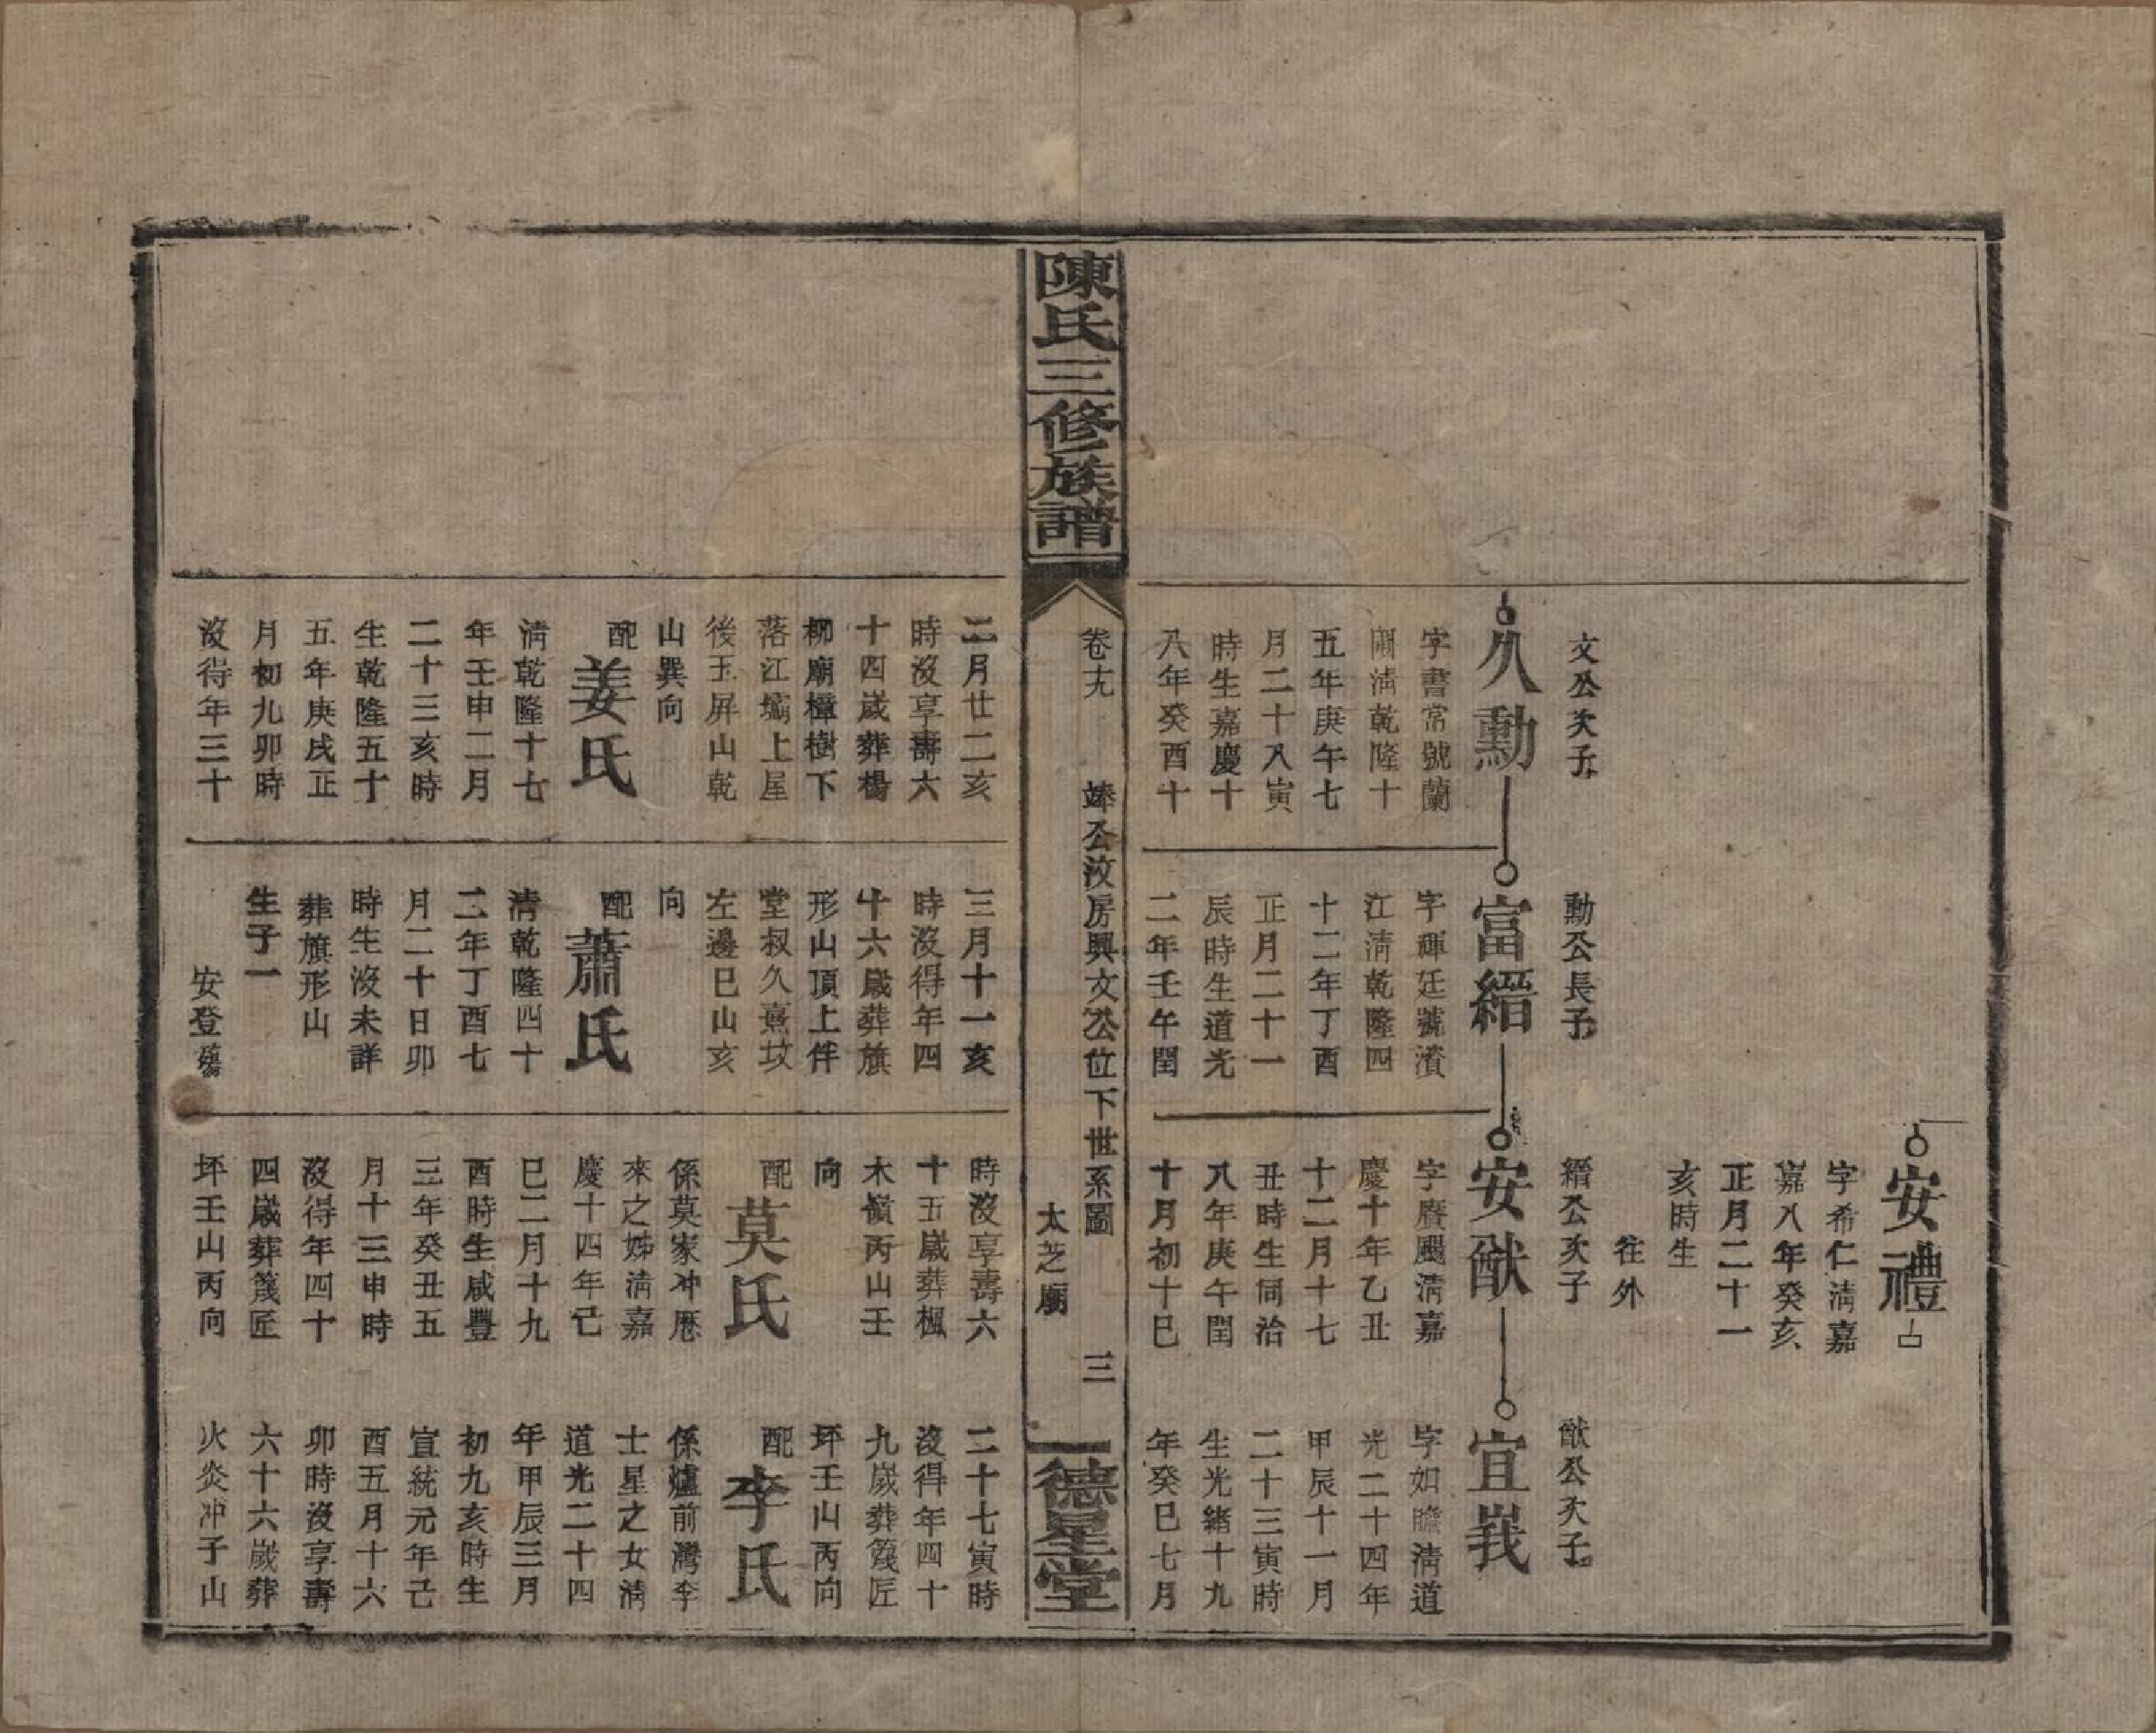 安禮
字希仁淸嘉
嘉八年癸亥
正月二十一
亥時生
往外
文公次子
久勳
字書常號蘭
閣淸乾隆十
五年庚午七
月二十八寅
時生嘉慶十
八年癸酉十
勳公長子
富縉
字輝廷號濱
江淸乾隆四
十二年丁酉
正月二十一
辰時生道光
二年壬午閏
縉公次子
安猷
字賡颺淸嘉
慶十年乙丑
十二月十七
丑時生同治
八年庚午閏
十月初十巳
猷公次子
宜峩
字如瞻淸道
光二十四年
甲辰十一月
二十三寅時
生光緒十九
年癸巳七月
陳氏三修族譜
卷十九
竦公汶房興文公位下世系圖
太芝廟
三
德星堂
二月廿二亥
時沒享壽六
十四歲葬楊
柳廟樟樹下
落江壩上屋
後玉屏山乾
山巽向
配
姜氏
淸乾隆十七
年壬申二月
二十三亥時
生乾隆五十
五年庚戌正
月初九卯時
沒得年三十
三月十一亥
時沒得年四
十六歲葬旗
形山頂上伴
堂叔久熹坟
左邊巳山亥
向
配
蕭氏
淸乾隆四十
二年丁酉七
月二十日卯
時生沒未詳
葬旗形山
生子一
安登殤
時沒享壽六
十五歲葬楓
木嶺丙山壬
向
配
莫氏
係莫家冲歷
來之姊淸嘉
慶十四年己
巳二月十九
酉時生咸豐
三年癸丑五
月十三申時
沒得年四十
四歲葬篾匠
坪壬山丙向
二十七寅時
沒得年四十
九歲葬篾匠
坪壬山丙向
配
李氏
係爐前灣李
士星之女淸
道光二十四
年甲辰三月
初九亥時生
宣統元年己
酉五月十六
卯時沒享壽
六十六歲葬
火炎冲子山